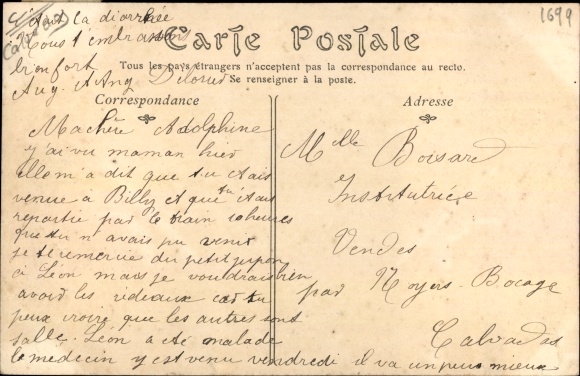 avait la diarrhée
Tous t'embrassons
bien fort
Aug. Ang Delorier
Calvados
1699
Carte Postale
Tous les pays étrangers n'acceptent pas la correspondance au recto.
Se renseigner à la poste.
Correspondance
Ma chère Adolphine
J'ai vu maman hier
elle m'a dit que tu étais
venue à Billy et que tu étais
repartie par le train 10 heures
que tu n'avais pu venir
je te remercie du petit jupon
à Léon mais je voudrais bien
avoir les rideaux car tu
peux croire que les autres sont
salle. Léon a été malade
le médecin y est venu vendredi il va un peu mieux
Adresse
Melle Boisard
Institutrice
Vendes
par Noyers-Bocage
Calvados